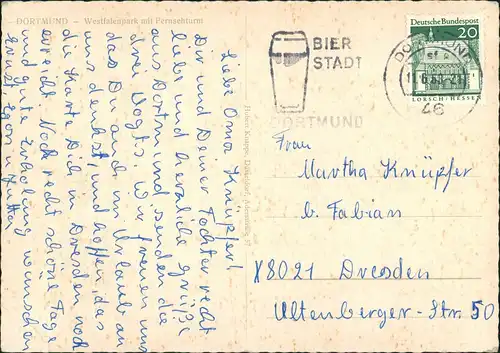 DORTMUND — Westfalenpark mit Fernsehturm
Liebe Oma Knüpfer!
Dir und Deiner Tochter recht
liebe und herzliche Grüße
aus Dortmund senden die
drei Vogts. Wir freuen uns
das Du auch im Urlaub an
uns denkst und hoffen das
die Karte Dich in Dresden noch
erreicht. Noch recht schöne Tage
und gute Erholung wünschen
Ernst Egon u. Jutta
BIER
STADT
DORTMUND
DORTMUND
46
Deutsche Bundespost
20
LORSCH/HESSEN
Frau
Martha Knüpfer
b. Fabian
X8021 Dresden
Altenberger-Str. 50